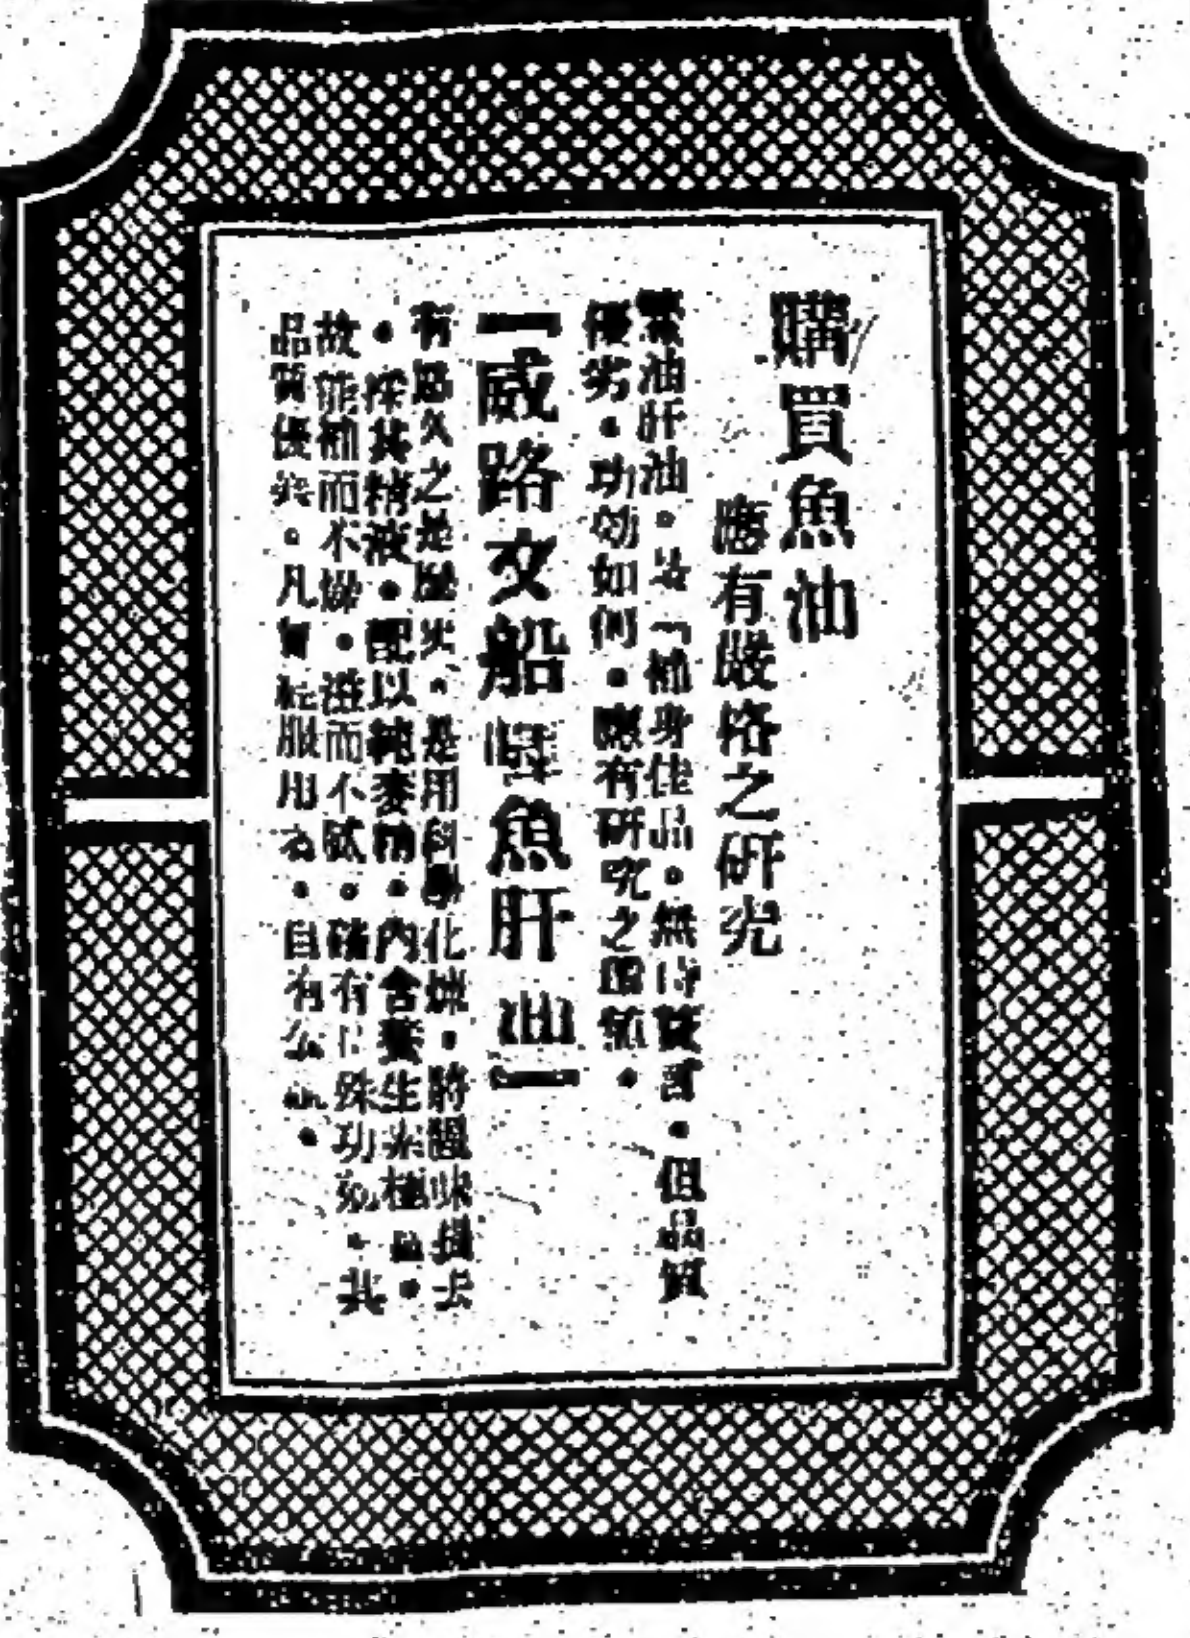 購買魚油
應有嚴格之研究
魚油肝油。是「補身佳品。無待贅言。但品質
優劣。功効如何。應有研究之選擇。
「威路文船牌魚肝油」
有悠久之是歷史。是用科學化煉。將腥味提去
。採其精液。配以純麥精。內含養生素極品。
故能補而不燥。滋而不膩。確有特殊功効。其
品質優美。凡曾經服用者。自有公論。